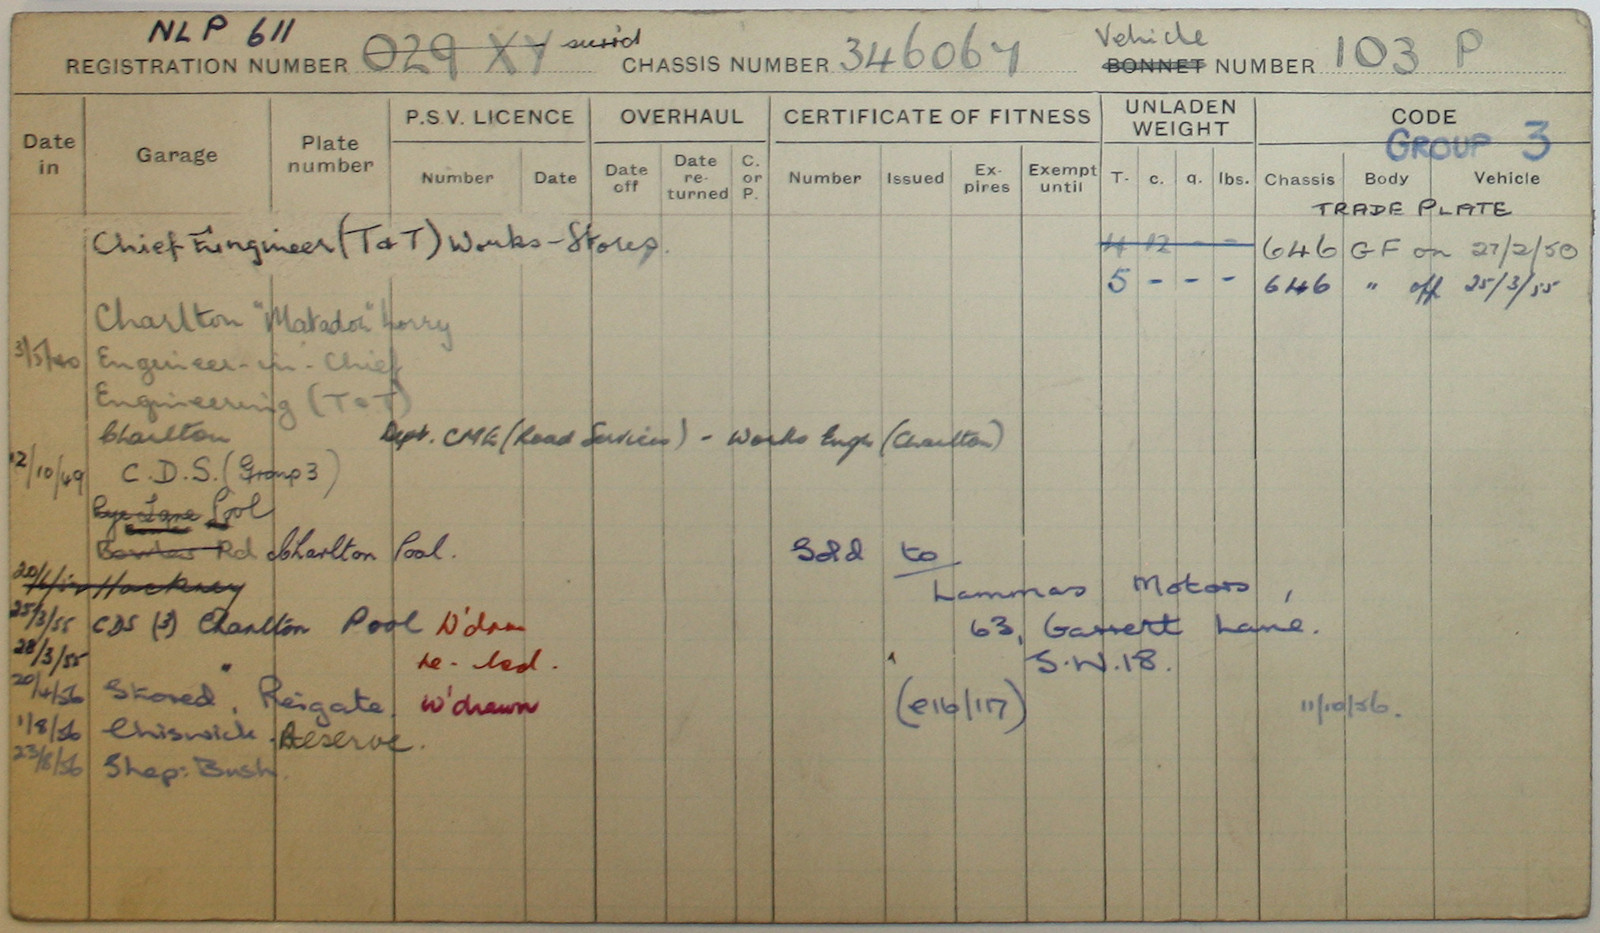 NLP 611
REGISTRATION NUMBER 029 XY surr'd CHASSIS NUMBER 346064 Vehicle BONNET NUMBER 103 P
Date in Garage Plate number P.S.V. LICENCE OVERHAUL CERTIFICATE OF FITNESS UNLADEN WEIGHT CODE
GROUP 3
Number Date Date off Date re-turned C. or P. Number Issued Ex-pires Exempt until T. c. q. lbs. Chassis Body Vehicle
TRADE PLATE
Chief Engineer (T&T) Works - Stores. 4 12 - - 646 GF on 27/2/50
5 - - - 646 " off 25/3/55
Charlton "Matador" Lorry
3/5/40 Engineer-in-Chief
Engineering (T&T)
Charlton Dept. CME (Road Services) - Works Engr (Charlton)
12/10/49 C.D.S. (Group 3)
Rye Lane Pool
Bowles Rd Charlton Pool. Sold to
Hackney Lammas Motors,
25/3/55 CDS (3) Charlton Pool W'drn 63, Garrett Lane.
28/3/55 " re-lcd. S.W.18.
20/4/56 Stored, Reigate. W'drawn (e16/117) 11/10/56.
1/8/56 Chiswick. Reserve.
23/8/56 Shep: Bush.